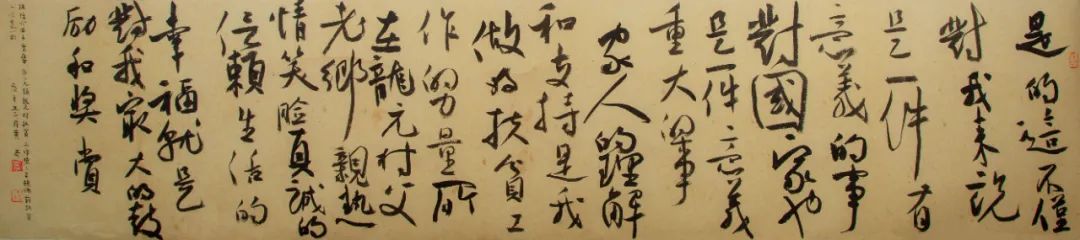 是的這不僅
對我来说
是一件有
意義的事
對國家也
是一件意義
重大的事
家人的理解
和支持是我
做为扶贫工
作的力量所
在龍元村父
老鄉親熱
情笑脸真誠的
信賴生活的
幸福就是
對我最大的鼓
励和奖赏